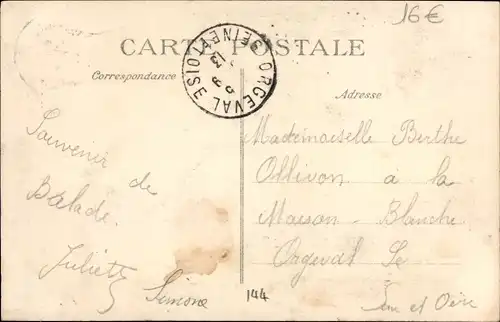 16€
CARTE POSTALE
ORGEVAL
SEINE & OISE
9
13
Correspondance
Adresse
Souvenir
de
Balade
Juliette
Simone
144
Mademoiselle Berthe
Ollivon à la
Maison - Blanche
Orgeval
Seine et Oise